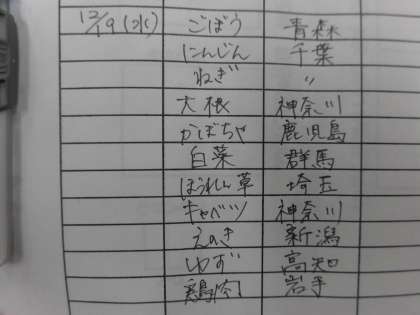 12/19(水) ごぼう 青森
にんじん 千葉
ねぎ 〃
大根 神奈川
かぼちゃ 鹿児島
白菜 群馬
ほうれん草 埼玉
キャベツ 神奈川
えのき 新潟
ゆず 高知
鶏肉 岩手